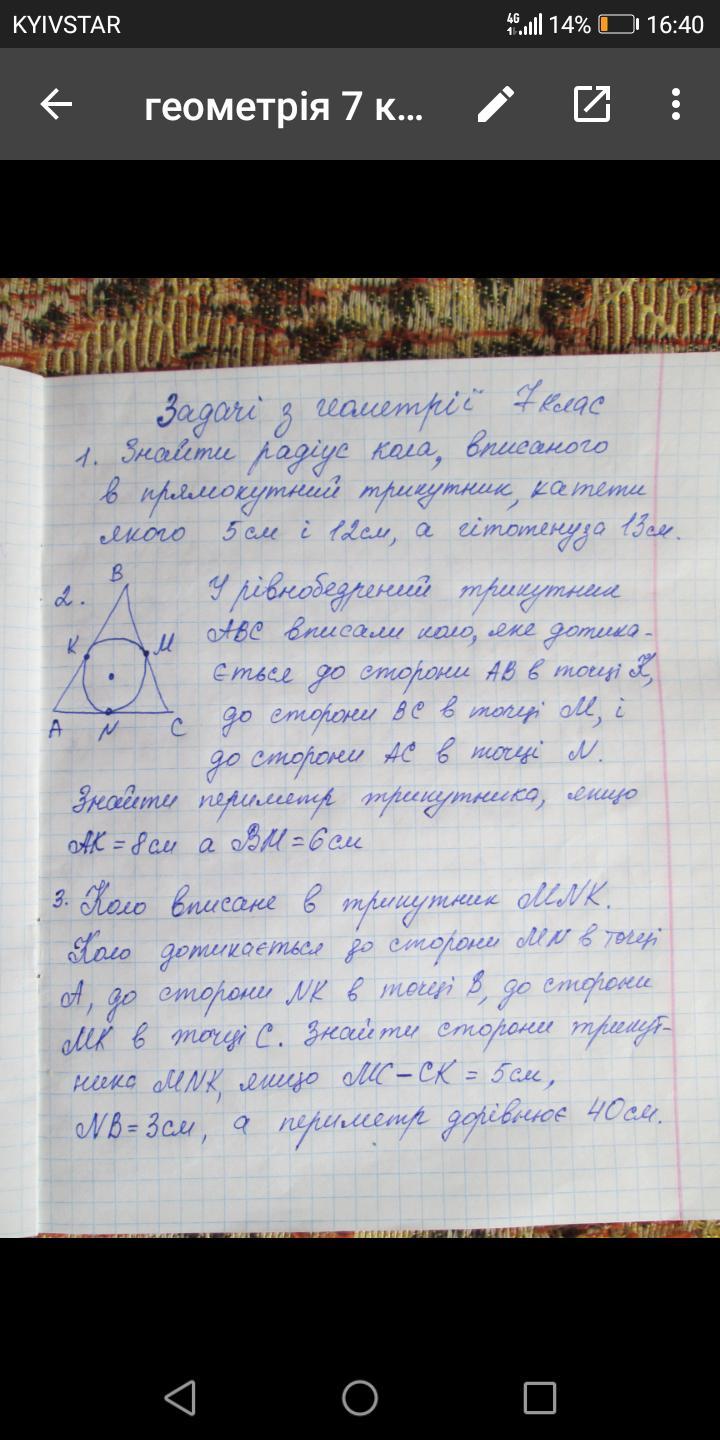 KYIVSTAR 4G 14% 16:40
геометрія 7 к...
Задачі з геометрії 7 клас
1. Знайти радіус кола, вписаного
в прямокутний трикутник, катети
якого 5см і 12см, а гіпотенуза 13см.
2. У рівнобедрений трикутник
ABC вписали коло, яке дотика-
ється до сторони AB в точці K,
до сторони BC в точці M, і
до сторони AC в точці N.
B
K M
A N C
Знайти периметр трикутника, якщо
AK = 8см а BM = 6см
3. Коло вписане в трикутник MNK.
Коло дотикається до сторони MN в точці
A, до сторони NK в точці B, до сторони
MK в точці C. Знайти сторони трикут-
ника MNK, якщо MC - CK = 5см,
NB = 3см, а периметр дорівнює 40см.